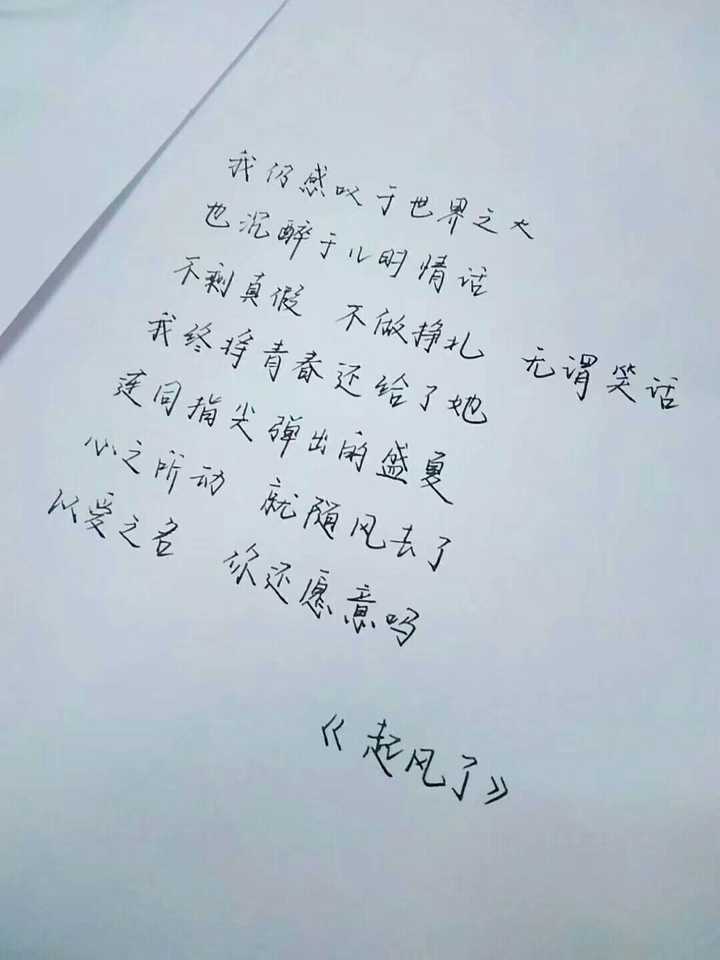 我仍感叹于世界之大
也沉醉于儿时情话
不剩真假 不做挣扎 无谓笑话
我终将青春还给了她
连同指尖弹出的盛夏
心之所动 就随风去了
以爱之名 你还愿意吗
《起风了》